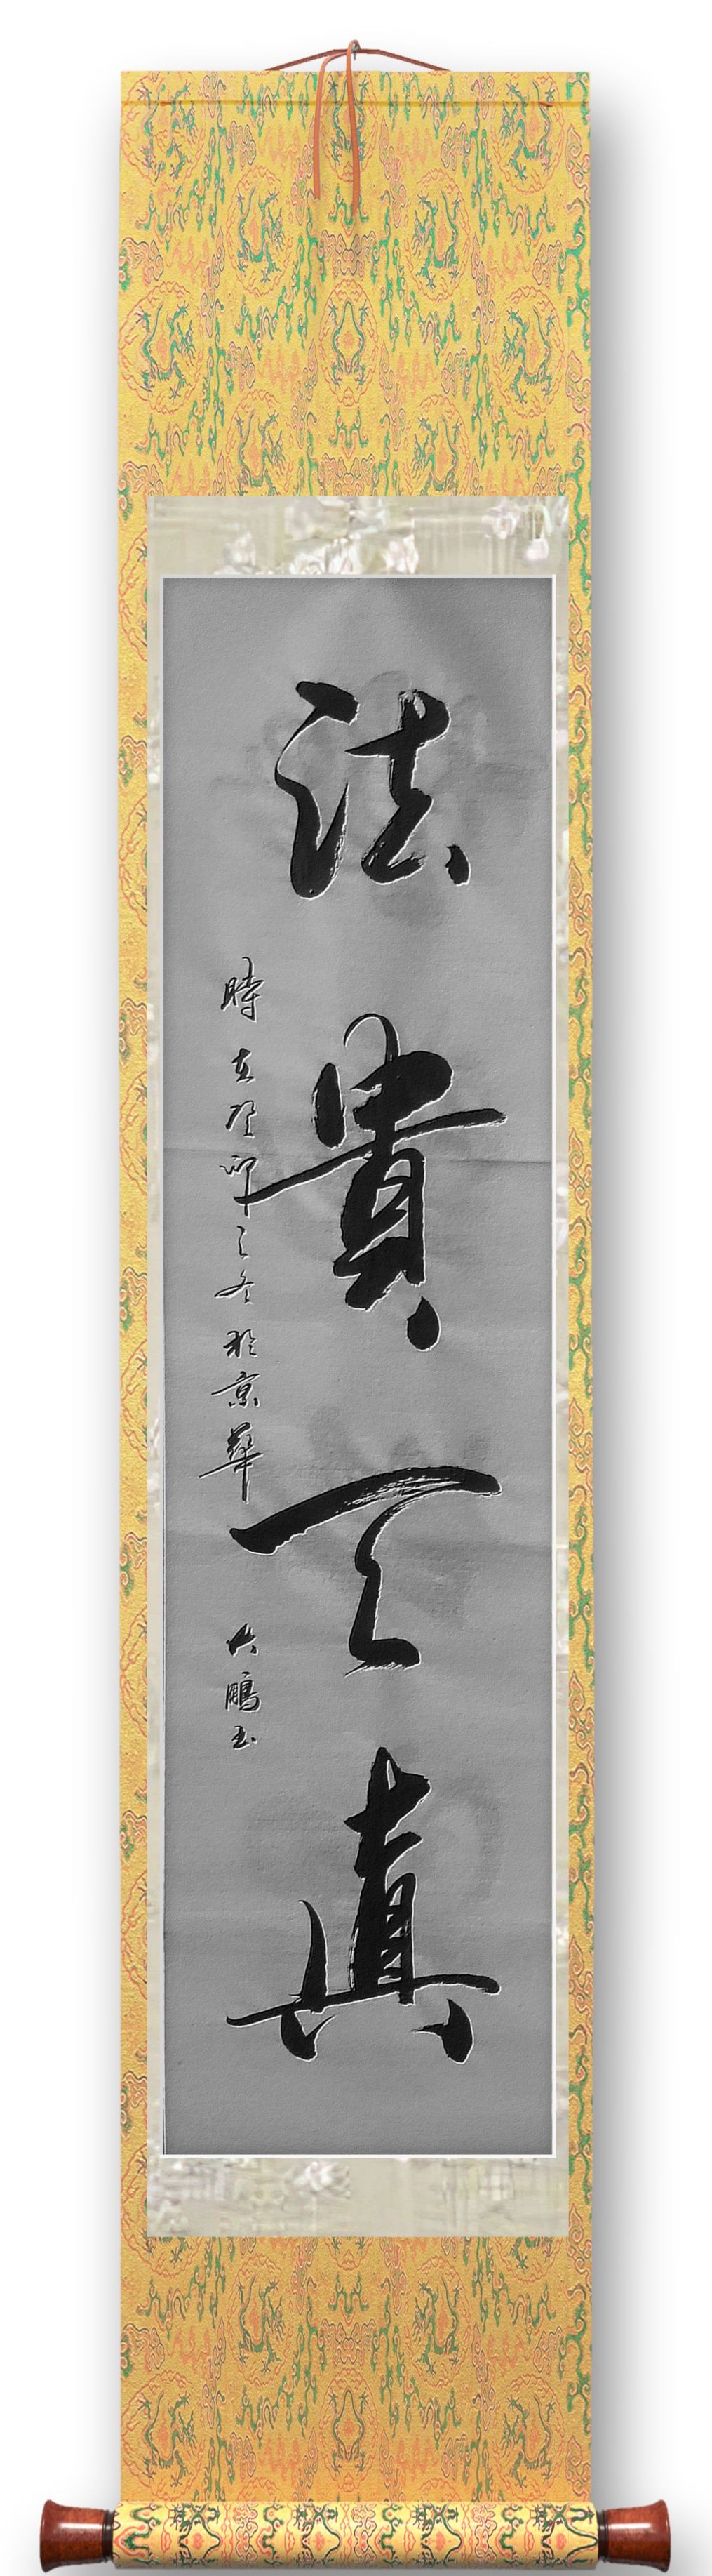 法貴天真
時在癸卯之冬於京華 大鵬書